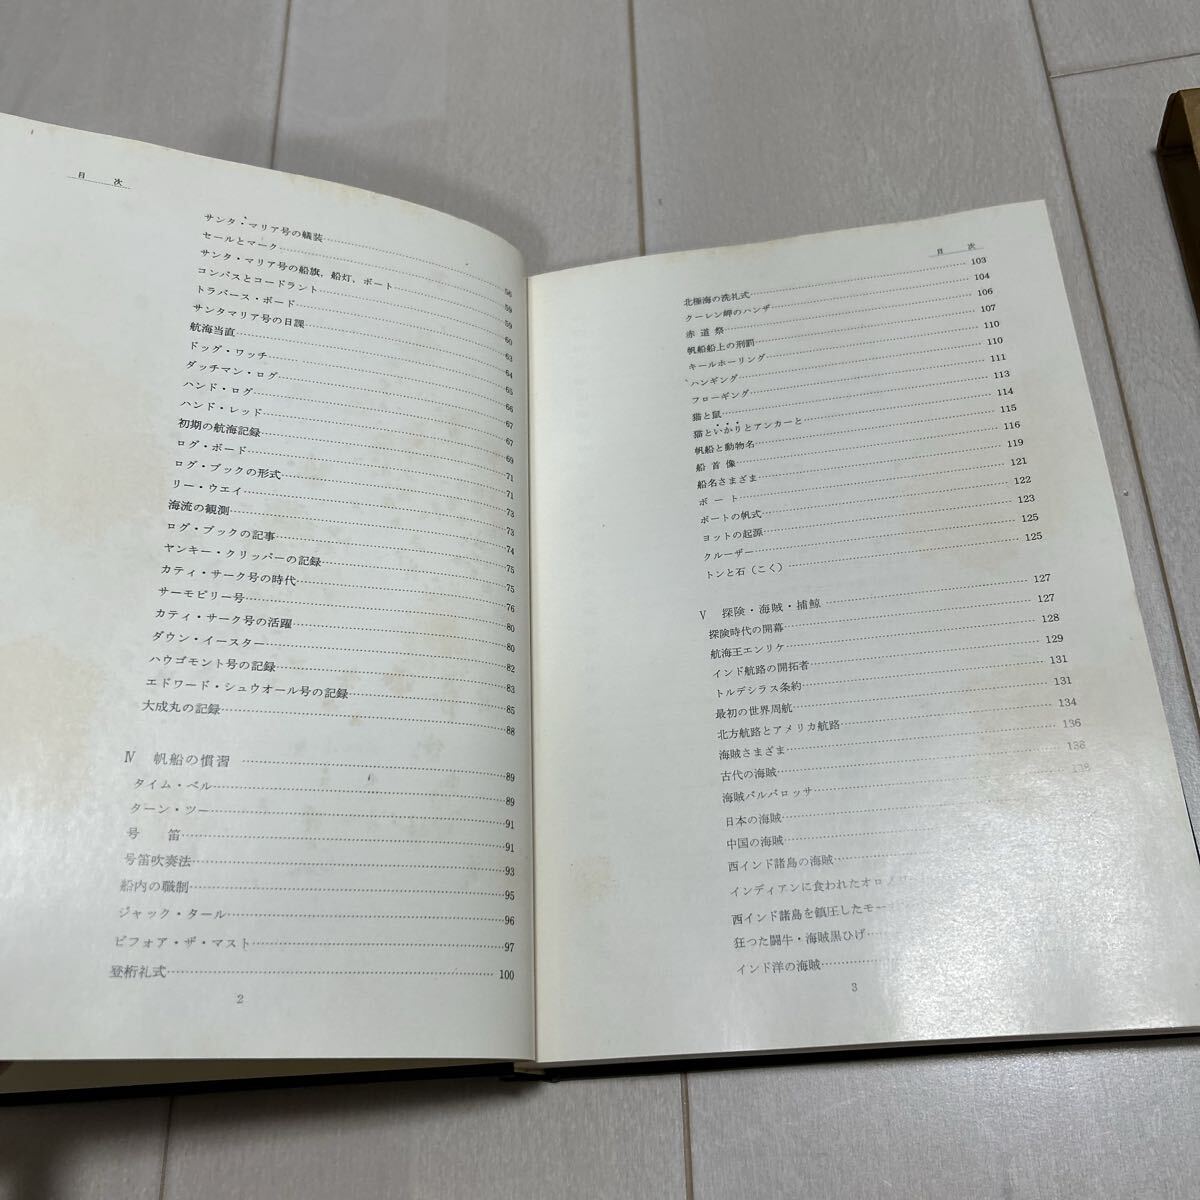 目次
サンタ・マリア号の艤装……56
セールとマーク……59
サンタ・マリア号の船旗，船灯，ボート……59
コンパスとコードラント……60
トラバース・ボード……63
サンタマリア号の日課……64
航海当直……65
ドッグ・ワッチ……66
ダッチマン・ログ……67
ハンド・ログ……67
ハンド・レッド……69
初期の航海記録……71
ログ・ボード……71
ログ・ブックの形式……73
リー・ウエイ……73
海流の観測……74
ログ・ブックの記事……75
ヤンキー・クリッパーの記録……75
カティ・サーク号の時代……76
サーモピリー号……80
カティ・サーク号の活躍……80
ダウン・イースター……82
ハウゴモント号の記録……83
エドワード・シュウオール号の記録……85
大成丸の記録……88
Ⅳ 帆船の慣習……89
タイム・ベル……89
ターン・ツー……91
号笛……91
号笛吹奏法……93
船内の職制……95
ジャック・タール……96
ビフォア・ザ・マスト……97
登桁礼式……100
2
目次
北極海の洗礼式……103
クーレン岬のハンザ……104
赤道祭……106
帆船船上の刑罰……107
キールホーリング……110
ハンギング……110
フローギング……111
猫と鼠……113
猫といかりとアンカーと……114
帆船と動物名……115
船首像……116
船名さまざま……119
ボート……121
ボートの帆式……122
ヨットの起源……123
クルーザー……125
トンと石（こく）……125
Ⅴ 探険・海賊・捕鯨……127
探険時代の開幕……127
航海王エンリケ……128
インド航路の開拓者……129
トルデシラス条約……131
最初の世界周航……131
北方航路とアメリカ航路……134
海賊さまざま……136
古代の海賊……138
海賊バルバロッサ……138
日本の海賊……
中国の海賊……
西インド諸島の海賊……
インディアンに食われたオロ
西インド諸島を鎮圧したモー
狂つた闘牛・海賊黒ひげ……
インド洋の海賊……
3